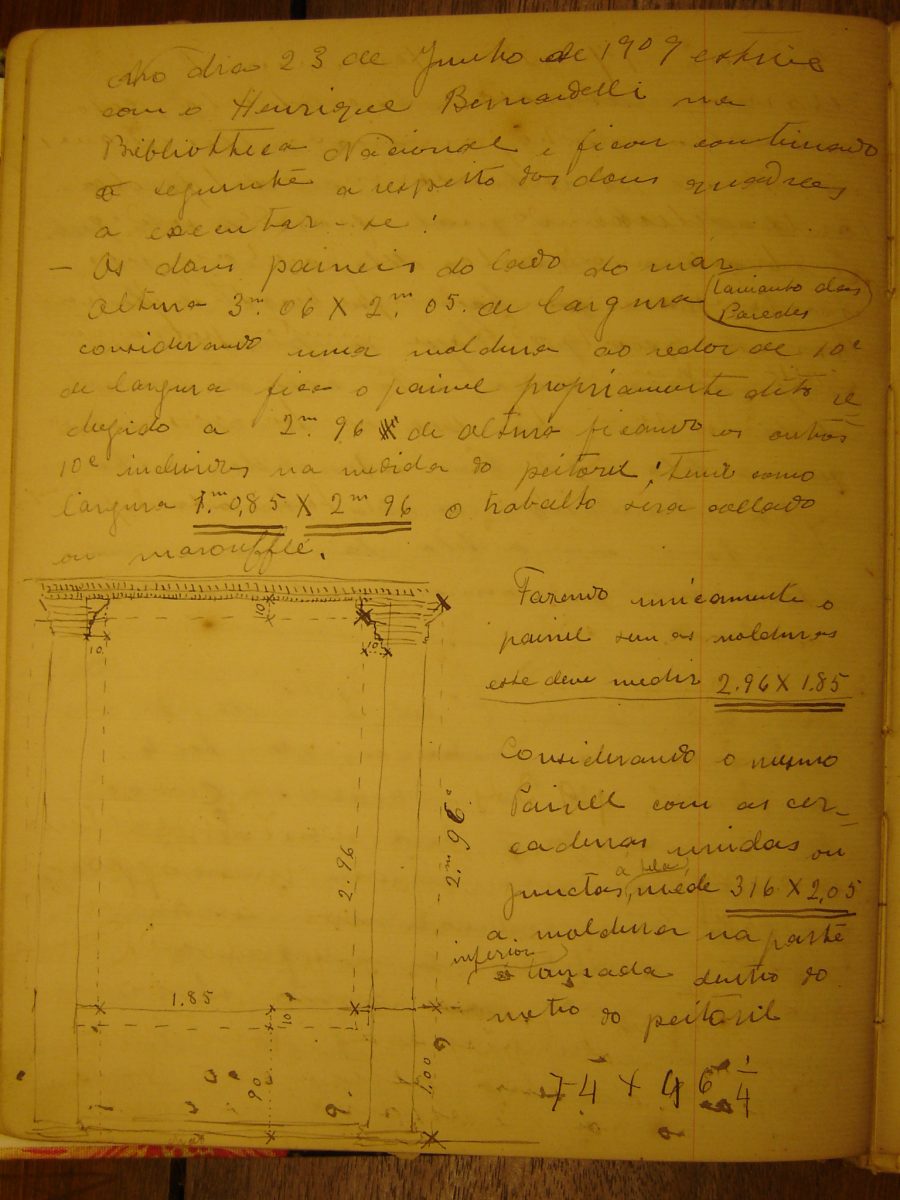 No dia 23 de Junho de 1909 estive
com o Henrique Bernardelli na
Bibliotheca Nacional e ficou continuado
o seguinte a respeito dos dous quadros
a executar-se:
— Os dous paineis do lado do mar
altura 3m.06 X 2m.05. de largura (tamanho das
Paredes
considerando uma moldura ao redor de 10c
de largura fica o painel propriamente dito re
dusido a 2m.96 de altura ficando os outros
10c incluidos na medida do peitoril; tendo como
largura 1m.0,85 X 2m 96 o trabalho sera collado
ou marouflé.
Fazendo unicamente o
painel sem as molduras
este deve medir 2.96 X 1.85
Considerando o mesmo
Painel com as cer-
caduras unidas ou
junctas, á tela, mede 316 X 2,05
a moldura na parte
inferior tomada dentro do
metro do peitoril
74 X 46 1/4
10
10
10
2.96
2.m96.c
1.85
10
90
1.00